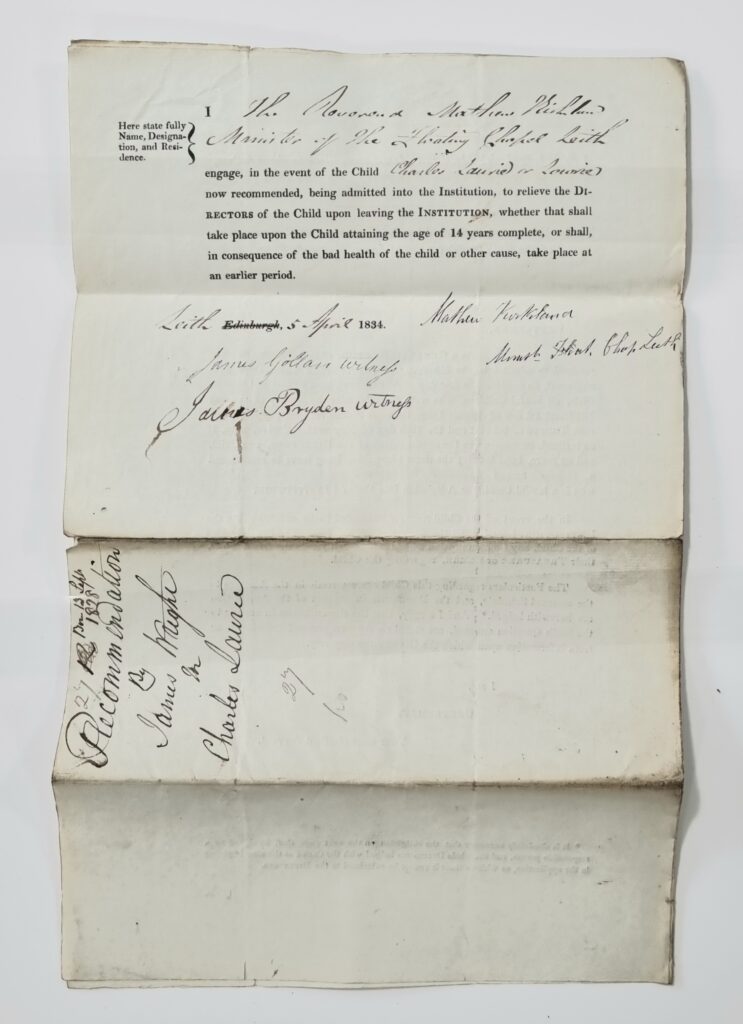 Here state fully
Name, Designa-
tion, and Resi-
dence.
I The Reverend Mathew Kirkland
Minister of the Floating Chapel Leith
engage, in the event of the Child Charles Laurie or Lowrie
now recommended, being admitted into the Institution, to relieve the DI-
RECTORS of the Child upon leaving the INSTITUTION, whether that shall
take place upon the Child attaining the age of 14 years complete, or shall,
in consequence of the bad health of the child or other cause, take place at
an earlier period.
Leith Edinburgh, 5 April 1834.
Mathew Kirkland
Minstr. Float. Chap. Leith
James Gollan witness
James Bryden witness
27 Born 13 Septr.
1828
Recommendation
By
James Wright
for
Charles Laurie
27